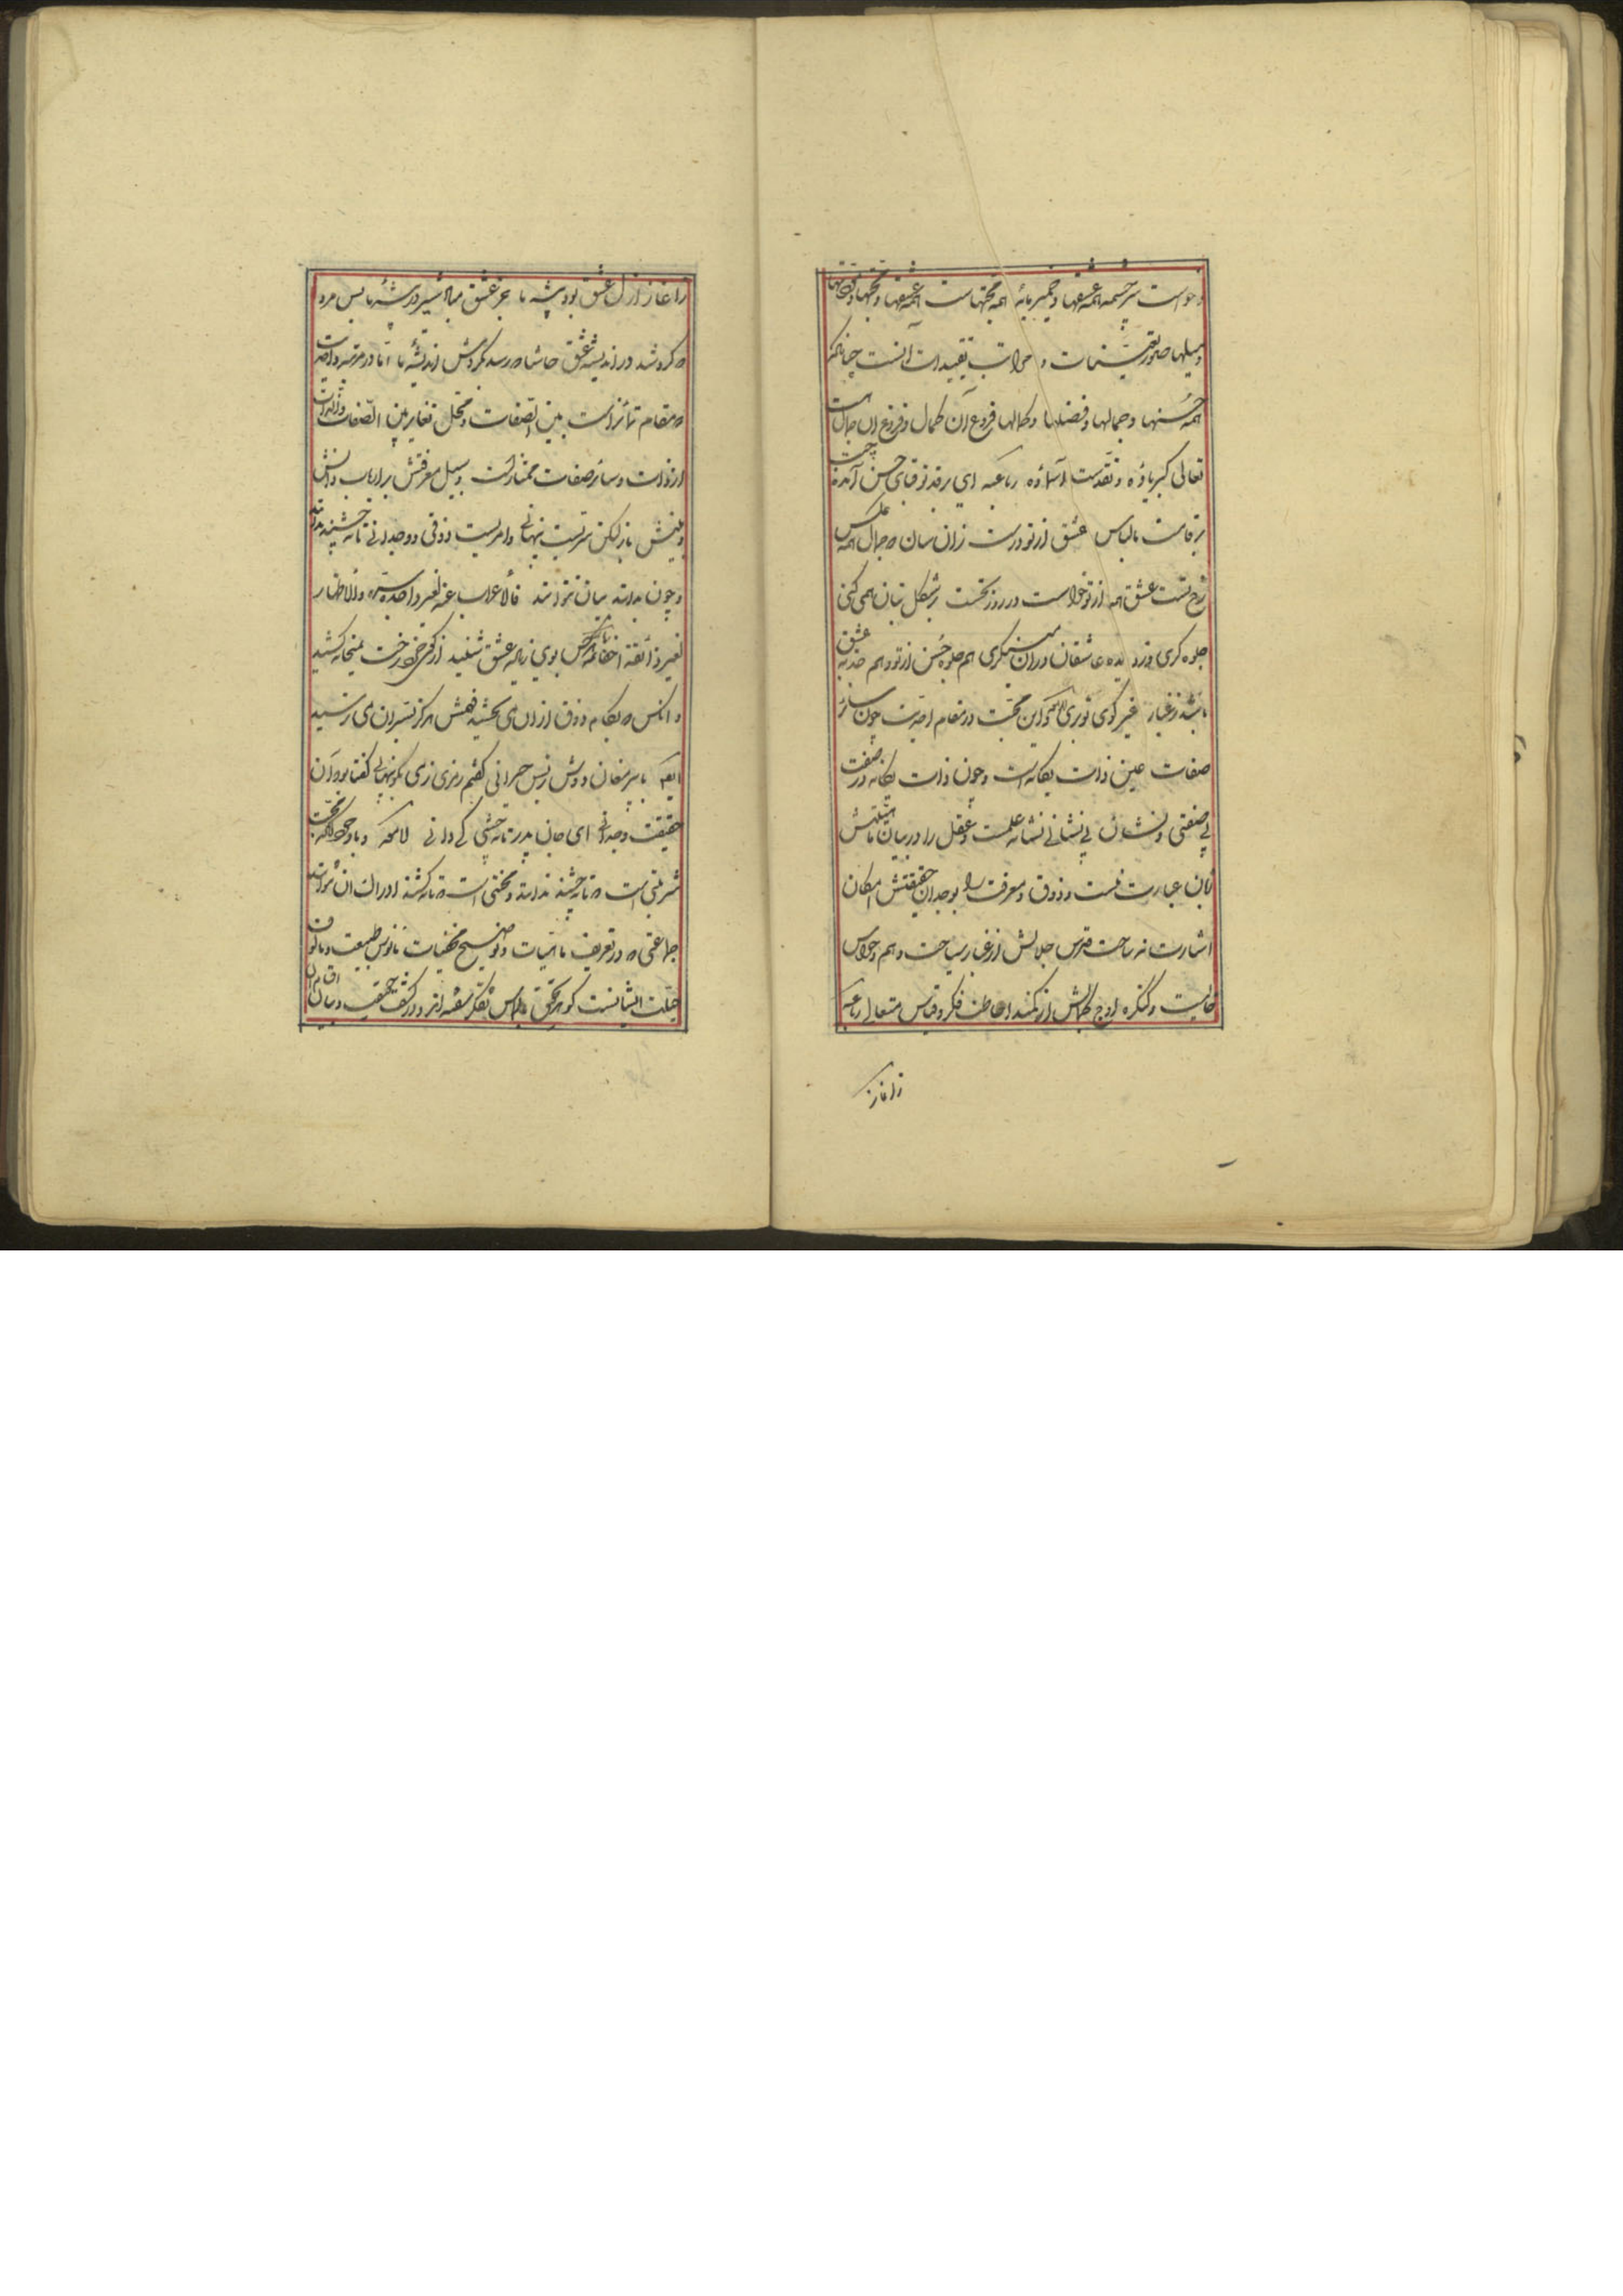 و خواست سرچشمه همه عشقها و خمیرمایه همه محبتهاست همه عشقها و محبتها و
و میلها صور تعینات و مراتب تقییدات آنست چنانکه
همه حسنها و جمالها و فضلها و کمالها فروع آن کمال و فروغ آن جمال است
تعالی کبریاؤه و تقدست آسماؤه رباعیه ای بر قد تو قبای حسن آمده چست
بر قامت ما لباس عشق از تو درست زان سان که جمال همه عکس
رخ تست عشق همه از تو خواست در روز نخست بر شکل بتان همی کنی
جلوه گری وز دیده عاشقان در آن می‌نگری هم جلوه حسن از تو و هم جذبه عشق
باشد ز غبار غیر کوی تو بری و این محبت در مقام احدیت چون سائر
صفات عین ذات یگانه است و چون ذات یگانه در صفت
بی صفتی و نشان بی نشانی نشانه علمست و عقل را در بیان ماهیتش
زبان عبارت نیست و ذوق و معرفت را بوجدان حقیقتش امکان
اشارت نه ساحت قدس جلالش از غبار سیاحت وهم و حواس
خالیست و کنگره اوج کمالش از کمند احاطت فکر و قیاس متعالی رباعیه
زآغاز
زآغاز ازل عشق بود پیشه ما جز عشق مباد شیر در بیشه ما بس مرد
که گرد شد در اندیشه عشق حاشا که رسد بگردش اندیشه ما اما در مرتبه واحدیت
که مقام تمایز است بین الصفات و محل تغایر بین الصفات والذات
از ذات و سائر صفات ممتاز است و سبیل معرفتش بر ارباب دانش
و بینش باز لیکن سریست پنهانی و امریست ذوقی و وجدانی تا نچشند ندانند
و چون بدانند بیان نتوانند فالاعراب عنه لغیر واجده ستر والاظهار
لغیر ذائقه اخفا هر کس بوی ز باده عشق شنید از کوی خرد رخت بمیخانه کشید
و انکس که بکام ذوق از ان می نچشید فهمش هرگز بسر آن می نرسید
ایضا با پیر مغان دوش ز بس حیرانی گفتم رمزی ز می بگو پنهانی گفتا بود آن
حقیقت وجدانی ای جان پدر تا نچشی کی دانی لامعه و با وجود آنکه محبت
شربتی است که تا نچشند ندانند و محنتی است که تا نکشند ادراک آن نتوانند
جماعتی که در تعریف ماهیات و توضیح مخفیات مانوس طبیعت و مألوف
جبلت ایشانست گوهر تحقیق بالماس تفکر سفته اند و در کشف حقیقت و بیان اقسام آن